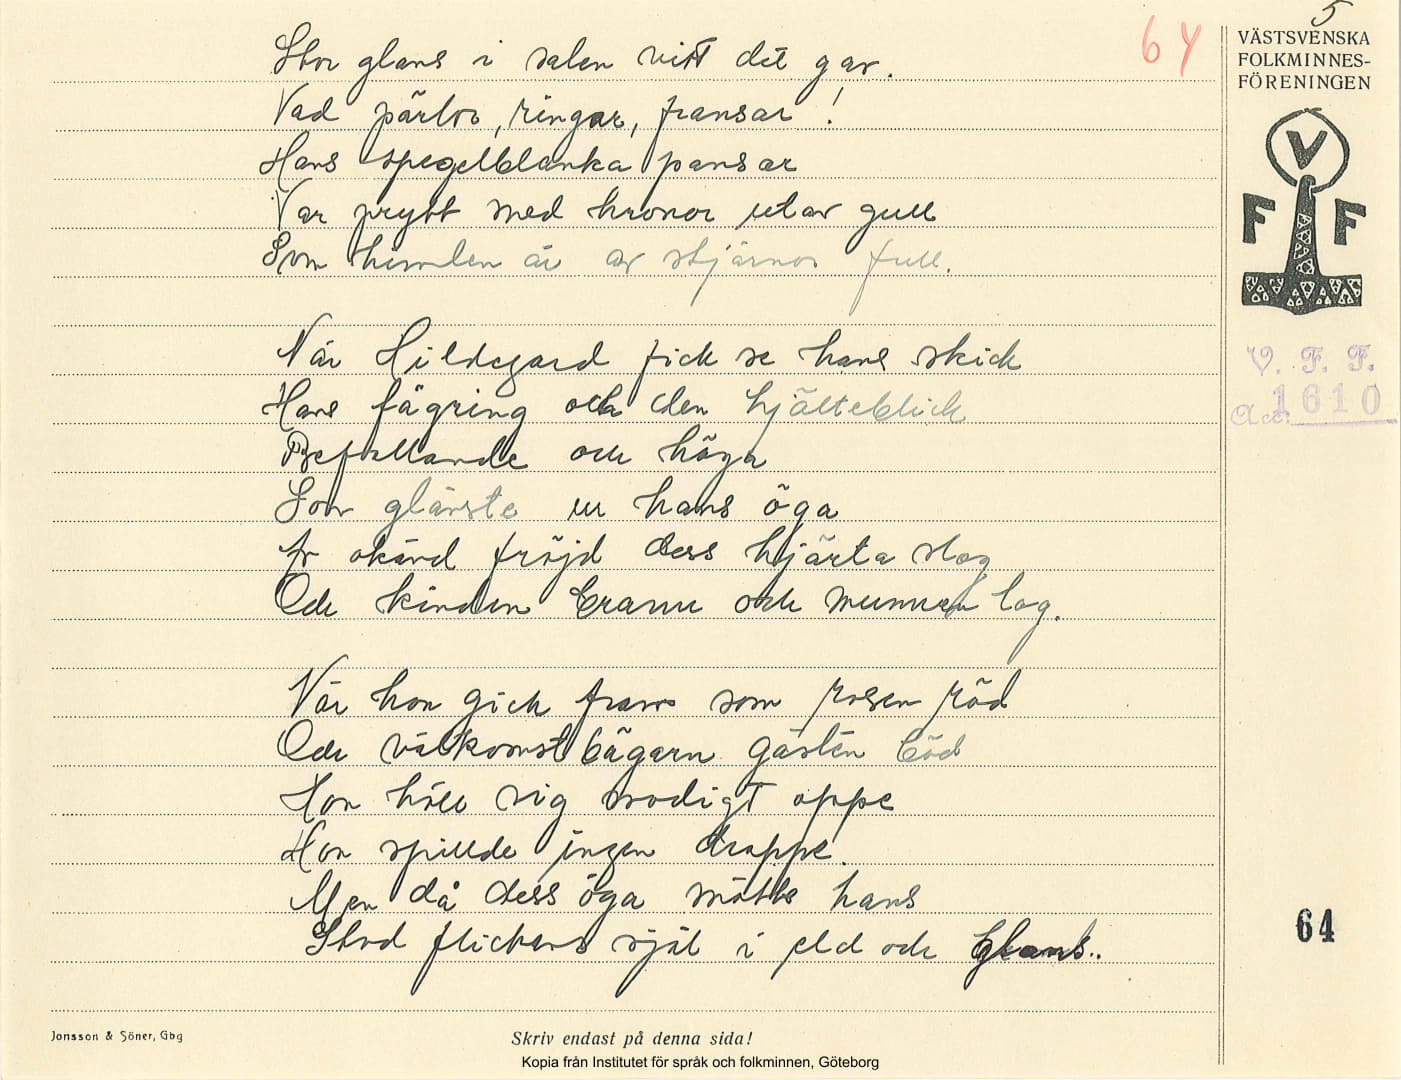 5
64
VÄSTSVENSKA
FOLKMINNES-
FÖRENINGEN
V
F F
V. F. F.
Acc. 1610
Stor glans i salen vitt det gav.
Vad pärlor, ringar, fransar!
Hans spegelblanka pansar
Var prytt med kronor utav gull
Som himlen är av stjärnor full.
När Hildegard fick se hans skick
Hans fägring och den hjälteblick
Befallande och höga
Som glänste ur hans öga
Av okänd fröjd dess hjärta slog
Och kinden brann och munnen log.
När hon gick fram som rosen röd
Och välkomstbägarn gästen böd
Hon höll sig modigt oppe
Hon spillde ingen droppe.
Men då dess öga mötte hans
Stod flickans själ i eld och glans..
64
Jonsson & Söner, Gbg
Skriv endast på denna sida!
Kopia från Institutet för språk och folkminnen, Göteborg